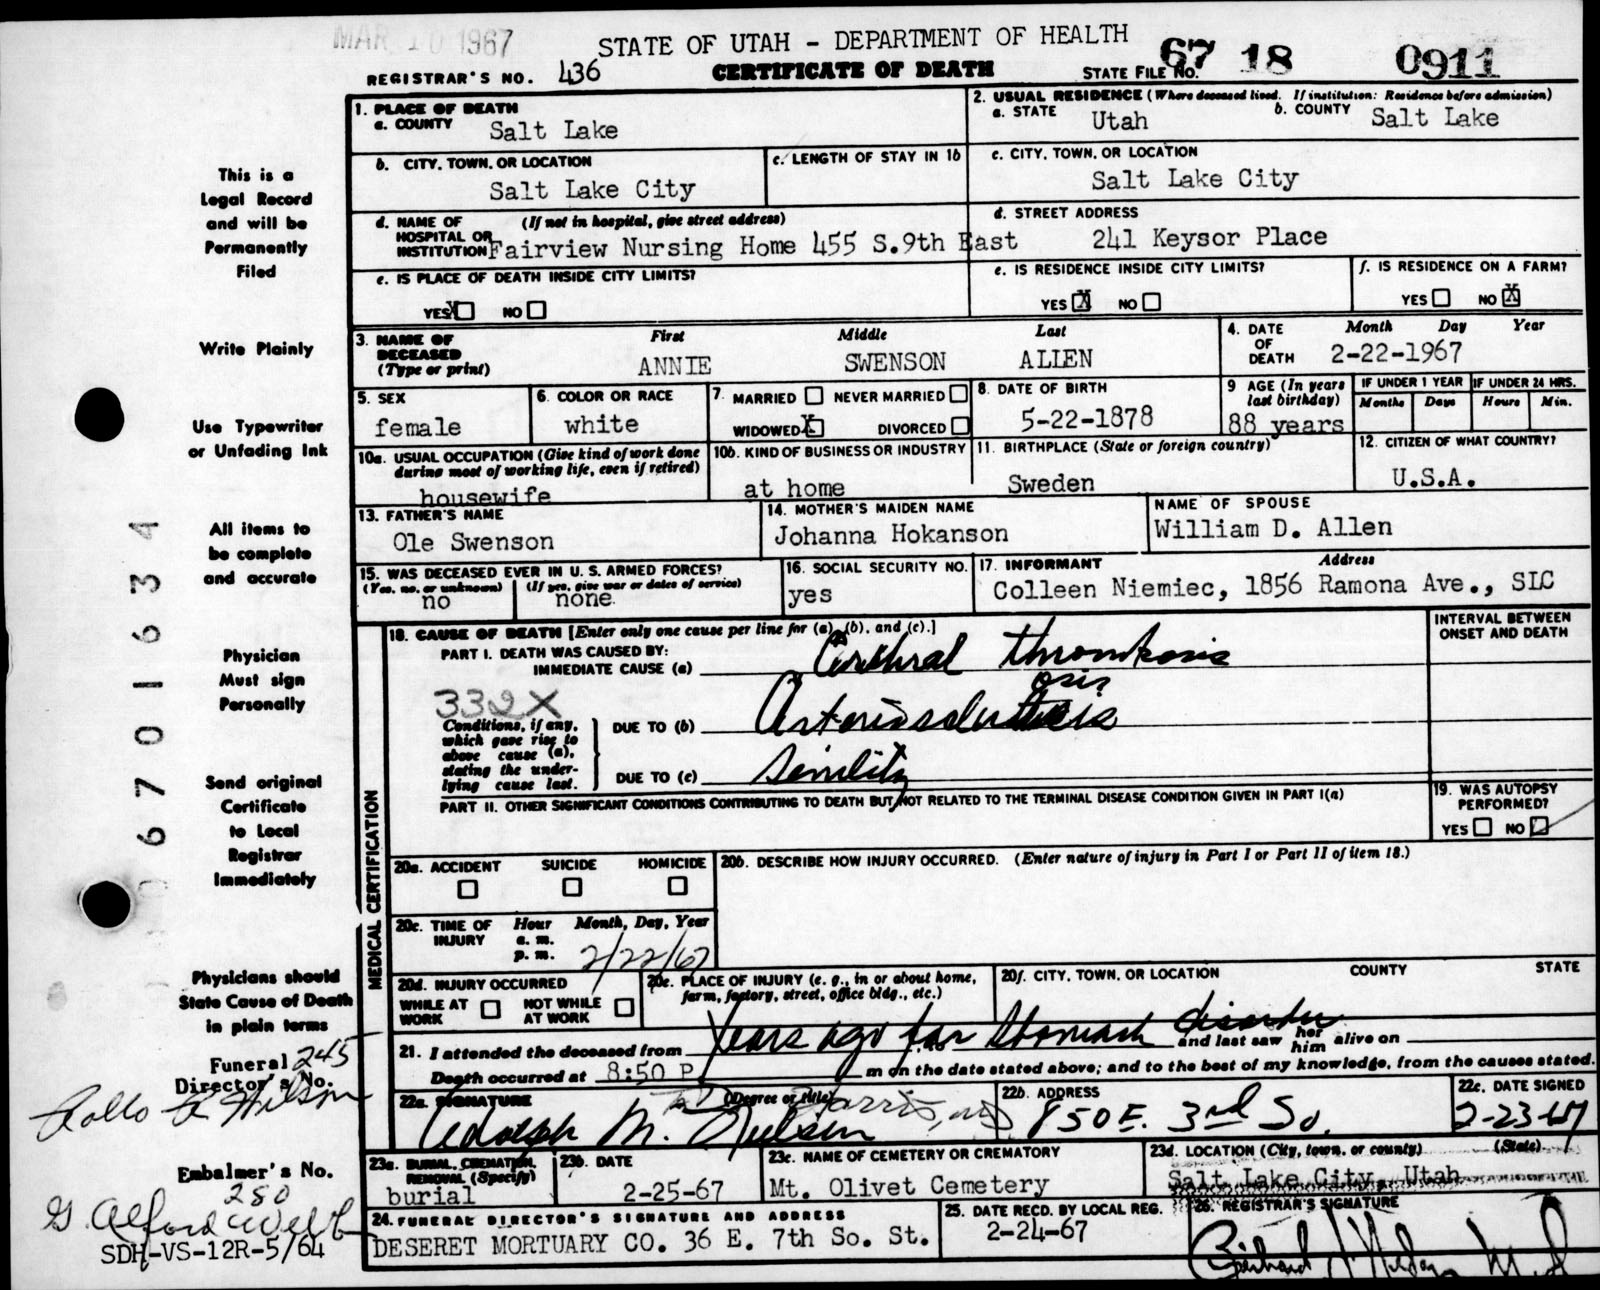 MAR 10 1967
STATE OF UTAH - DEPARTMENT OF HEALTH
REGISTRAR'S NO. 436
CERTIFICATE OF DEATH
STATE FILE NO. 67 18 0911
This is a
Legal Record
and will be
Permanently
Filed
Write Plainly
Use Typewriter
or Unfading Ink
All items to
be complete
and accurate
Physician
Must sign
Personally
Send original
Certificate
to Local
Registrar
Immediately
Physicians should
State Cause of Death
in plain terms
Funeral 245
Director's No.
Rollo Wilson
Embalmer's No.
280
G. Alford Webb
SDH-VS-12R-5/64
0 6 7 0 1 6 3 4
1. PLACE OF DEATH
a. COUNTY Salt Lake
2. USUAL RESIDENCE (Where deceased lived. If institution: Residence before admission)
a. STATE Utah b. COUNTY Salt Lake
b. CITY, TOWN, OR LOCATION
Salt Lake City
c. LENGTH OF STAY IN 1b
c. CITY, TOWN, OR LOCATION
Salt Lake City
d. NAME OF HOSPITAL OR INSTITUTION (If not in hospital, give street address)
Fairview Nursing Home 455 S.9th East
d. STREET ADDRESS
241 Keysor Place
e. IS PLACE OF DEATH INSIDE CITY LIMITS?
YES X NO
e. IS RESIDENCE INSIDE CITY LIMITS?
YES X NO
f. IS RESIDENCE ON A FARM?
YES NO X
3. NAME OF DECEASED (Type or print)
First Middle Last
ANNIE SWENSON ALLEN
4. DATE OF DEATH Month Day Year
2-22-1967
5. SEX
female
6. COLOR OR RACE
white
7. MARRIED NEVER MARRIED
WIDOWED X DIVORCED
8. DATE OF BIRTH
5-22-1878
9 AGE (In years last birthday)
88 years
IF UNDER 1 YEAR IF UNDER 24 HRS.
Months Days Hours Min.
10a. USUAL OCCUPATION (Give kind of work done during most of working life, even if retired)
housewife
10b. KIND OF BUSINESS OR INDUSTRY
at home
11. BIRTHPLACE (State or foreign country)
Sweden
12. CITIZEN OF WHAT COUNTRY?
U.S.A.
13. FATHER'S NAME
Ole Swenson
14. MOTHER'S MAIDEN NAME
Johanna Hokanson
NAME OF SPOUSE
William D. Allen
15. WAS DECEASED EVER IN U. S. ARMED FORCES?
(Yes, no, or unknown) (If yes, give war or dates of service)
no none
16. SOCIAL SECURITY NO.
yes
17. INFORMANT Address
Colleen Niemiec, 1856 Ramona Ave., SLC
MEDICAL CERTIFICATION
18. CAUSE OF DEATH [Enter only one cause per line for (a), (b), and (c).]
INTERVAL BETWEEN ONSET AND DEATH
PART I. DEATH WAS CAUSED BY:
IMMEDIATE CAUSE (a) Cerebral thrombosis
332X
Conditions, if any, which gave rise to above cause (a), stating the underlying cause last.
osis
DUE TO (b) Arteriosclerosis
DUE TO (c) Senility
PART II. OTHER SIGNIFICANT CONDITIONS CONTRIBUTING TO DEATH BUT NOT RELATED TO THE TERMINAL DISEASE CONDITION GIVEN IN PART I(a)
19. WAS AUTOPSY PERFORMED?
YES NO
20a. ACCIDENT SUICIDE HOMICIDE
20b. DESCRIBE HOW INJURY OCCURRED. (Enter nature of injury in Part I or Part II of item 18.)
20c. TIME OF INJURY Hour Month, Day, Year
a. m.
p. m. 2/22/67
20d. INJURY OCCURRED
WHILE AT WORK NOT WHILE AT WORK
20e. PLACE OF INJURY (e. g., in or about home, farm, factory, street, office bldg., etc.)
20f. CITY, TOWN, OR LOCATION COUNTY STATE
21. I attended the deceased from years ago for stomach disorder and last saw her him alive on
Death occurred at 8:50 P m on the date stated above; and to the best of my knowledge, from the causes stated.
22a. SIGNATURE (Degree or title)
Adolph M. Nielsen
22b. ADDRESS
850 E. 3rd So.
22c. DATE SIGNED
2-23-67
23a. BURIAL, CREMATION, REMOVAL (Specify)
burial
23b. DATE
2-25-67
23c. NAME OF CEMETERY OR CREMATORY
Mt. Olivet Cemetery
23d. LOCATION (City, town, or county) (State)
Salt Lake City, Utah
24. FUNERAL DIRECTOR'S SIGNATURE AND ADDRESS
DESERET MORTUARY CO. 36 E. 7th So. St.
25. DATE RECD. BY LOCAL REG.
2-24-67
26. REGISTRAR'S SIGNATURE